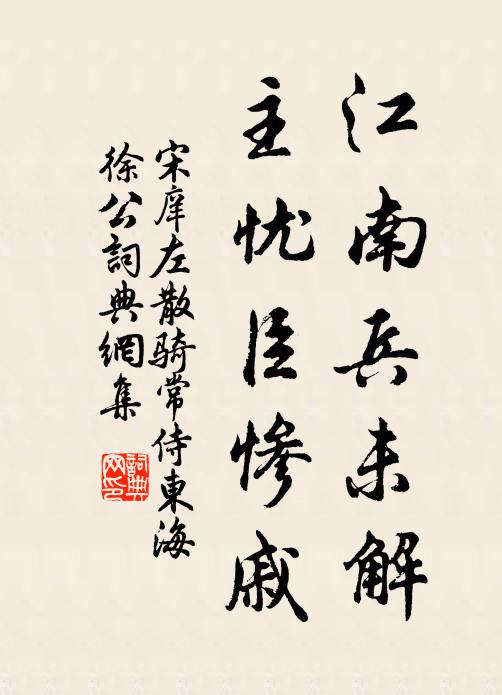 江南兵未解
主忧臣惨戚
宋庠左散骑常侍東海
徐公詞典網集
詞典
网印